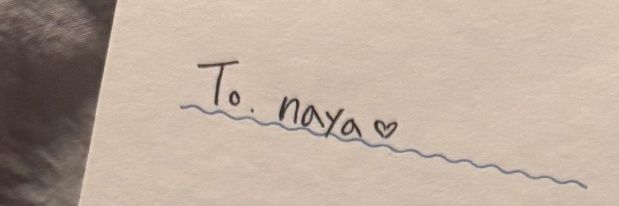 To. naya♡